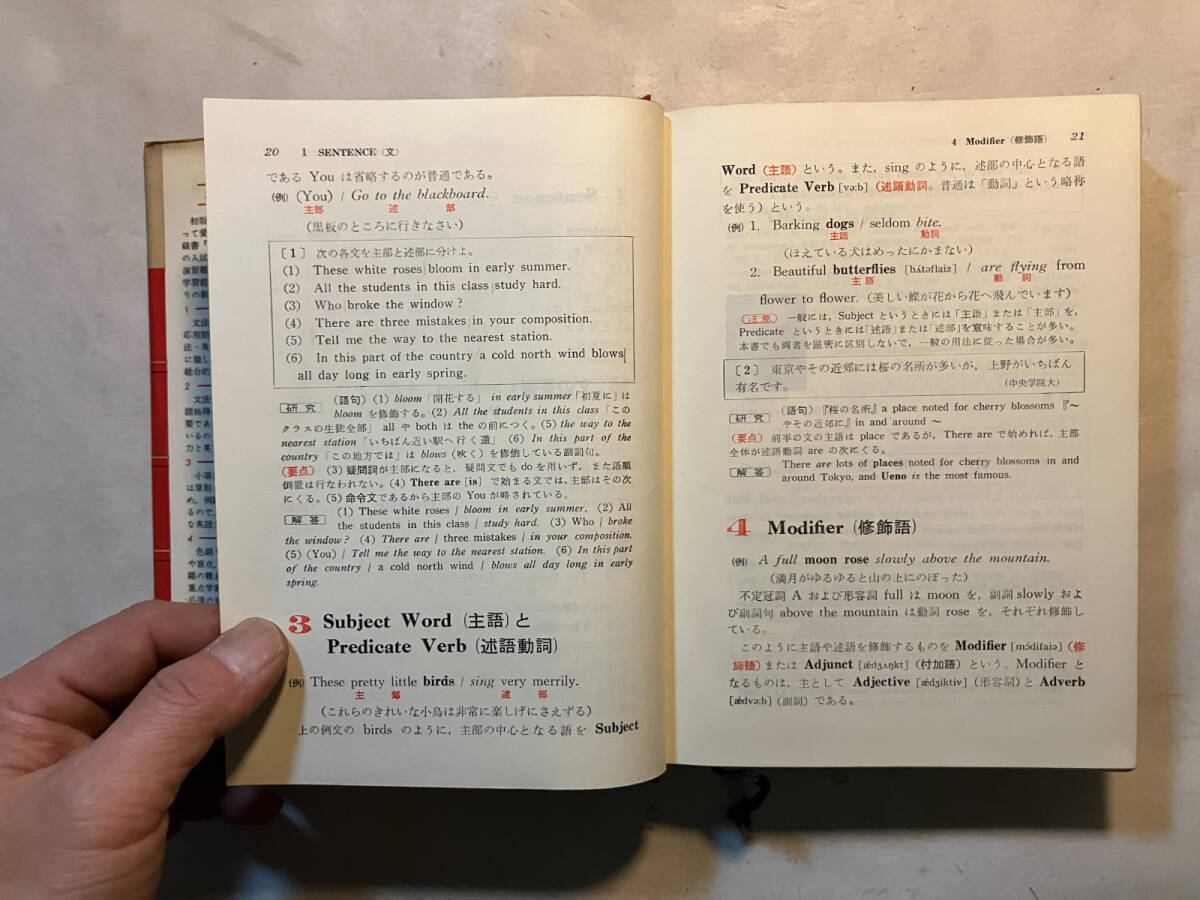 20 1 SENTENCE(文)
である You は省略するのが普通である。
(例) (You) / Go to the blackboard.
主部 述 部
(黒板のところに行きなさい)
〔1〕 次の各文を主部と述部に分けよ。
(1) These white roses bloom in early summer.
(2) All the students in this class study hard.
(3) Who broke the window?
(4) There are three mistakes in your composition.
(5) Tell me the way to the nearest station.
(6) In this part of the country a cold north wind blows
all day long in early spring.
研 究 (語句) (1) bloom「開花する」 in early summer「初夏に」は
bloom を修飾する。(2) All the students in this class「この
クラスの生徒全部」 all や both は the の前につく。(5) the way to the
nearest station「いちばん近い駅へ行く道」 (6) In this part of the
country「この地方では」は blows (吹く) を修飾している副詞句。
(要点) (3) 疑問詞が主部になると, 疑問文でも do を用いず, また語順
倒置は行なわれない。(4) There are [is] で始まる文では, 主部はその次
にくる。(5) 命令文であるから主部の You が略されている。
解 答 (1) These white roses / bloom in early summer. (2) All
the students in this class / study hard. (3) Who / broke
the window? (4) There are / three mistakes / in your composition.
(5) (You) / Tell me the way to the nearest station. (6) In this part
of the country / a cold north wind / blows all day long in early
spring.
3 Subject Word (主語) と
Predicate Verb (述語動詞)
(例) These pretty little birds / sing very merrily.
主 部 述 部
(これらのきれいな小鳥は非常に楽しげにさえずる)
上の例文の birds のように, 主部の中心となる語を Subject
4 Modifier (修飾語) 21
Word (主語) という。また, sing のように, 述部の中心となる語
を Predicate Verb [və:b] (述語動詞。普通は「動詞」という略称
を使う) という。
(例) 1. Barking dogs / seldom bite.
主語 動詞
(ほえている犬はめったにかまない)
2. Beautiful butterflies [bʌ́təflaiz] / are flying from
主語 動 詞
flower to flower. (美しい蝶が花から花へ飛んでいます)
(注意) 一般には, Subject というときには「主語」または「主部」を,
Predicate というときには「述語」または「述部」を意味することが多い。
本書でも両者を厳密に区別しないで, 一般の用法に従った場合が多い。
〔2〕 東京やその近郊には桜の名所が多いが, 上野がいちばん
有名です。 (中央学院大)
研 究 (語句)『桜の名所』a place noted for cherry blossoms『~
やその近郊に』in and around ~
(要点) 前半の文の主語は place であるが, There are で始めれば, 主部
全体が述語動詞 are の次にくる。
解 答 There are lots of places noted for cherry blossoms in and
around Tokyo, and Ueno is the most famous.
4 Modifier (修飾語)
(例) A full moon rose slowly above the mountain.
(満月がゆるゆると山の上にのぼった)
不定冠詞 A および形容詞 full は moon を, 副詞 slowly およ
び副詞句 above the mountain は動詞 rose を, それぞれ修飾し
ている。
このように主語や述語を修飾するものを Modifier [mɔ́difaiə] (修
飾語) または Adjunct [ǽdʒʌŋkt] (付加語) という。Modifier と
なるものは, 主として Adjective [ǽdʒiktiv] (形容詞) と Adverb
[ǽdvə:b] (副詞) である。